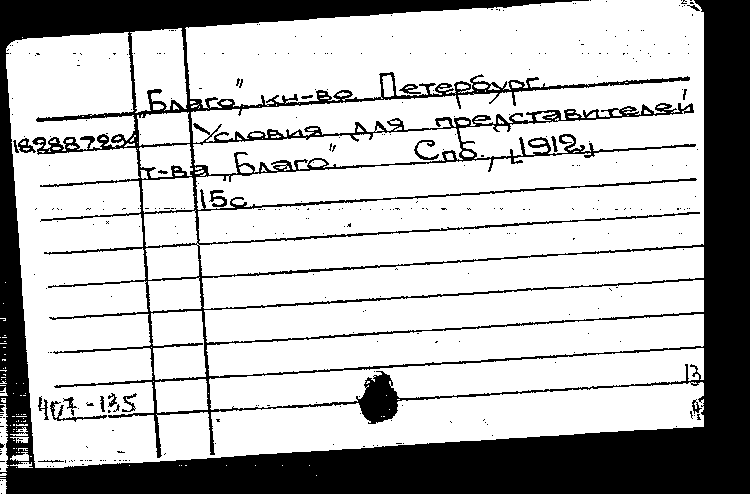 „Благо", кн-во. Петербург.
182887294 Условия для представителей
т-ва „Благо". Спб., [1912].
15с.
13
407-135